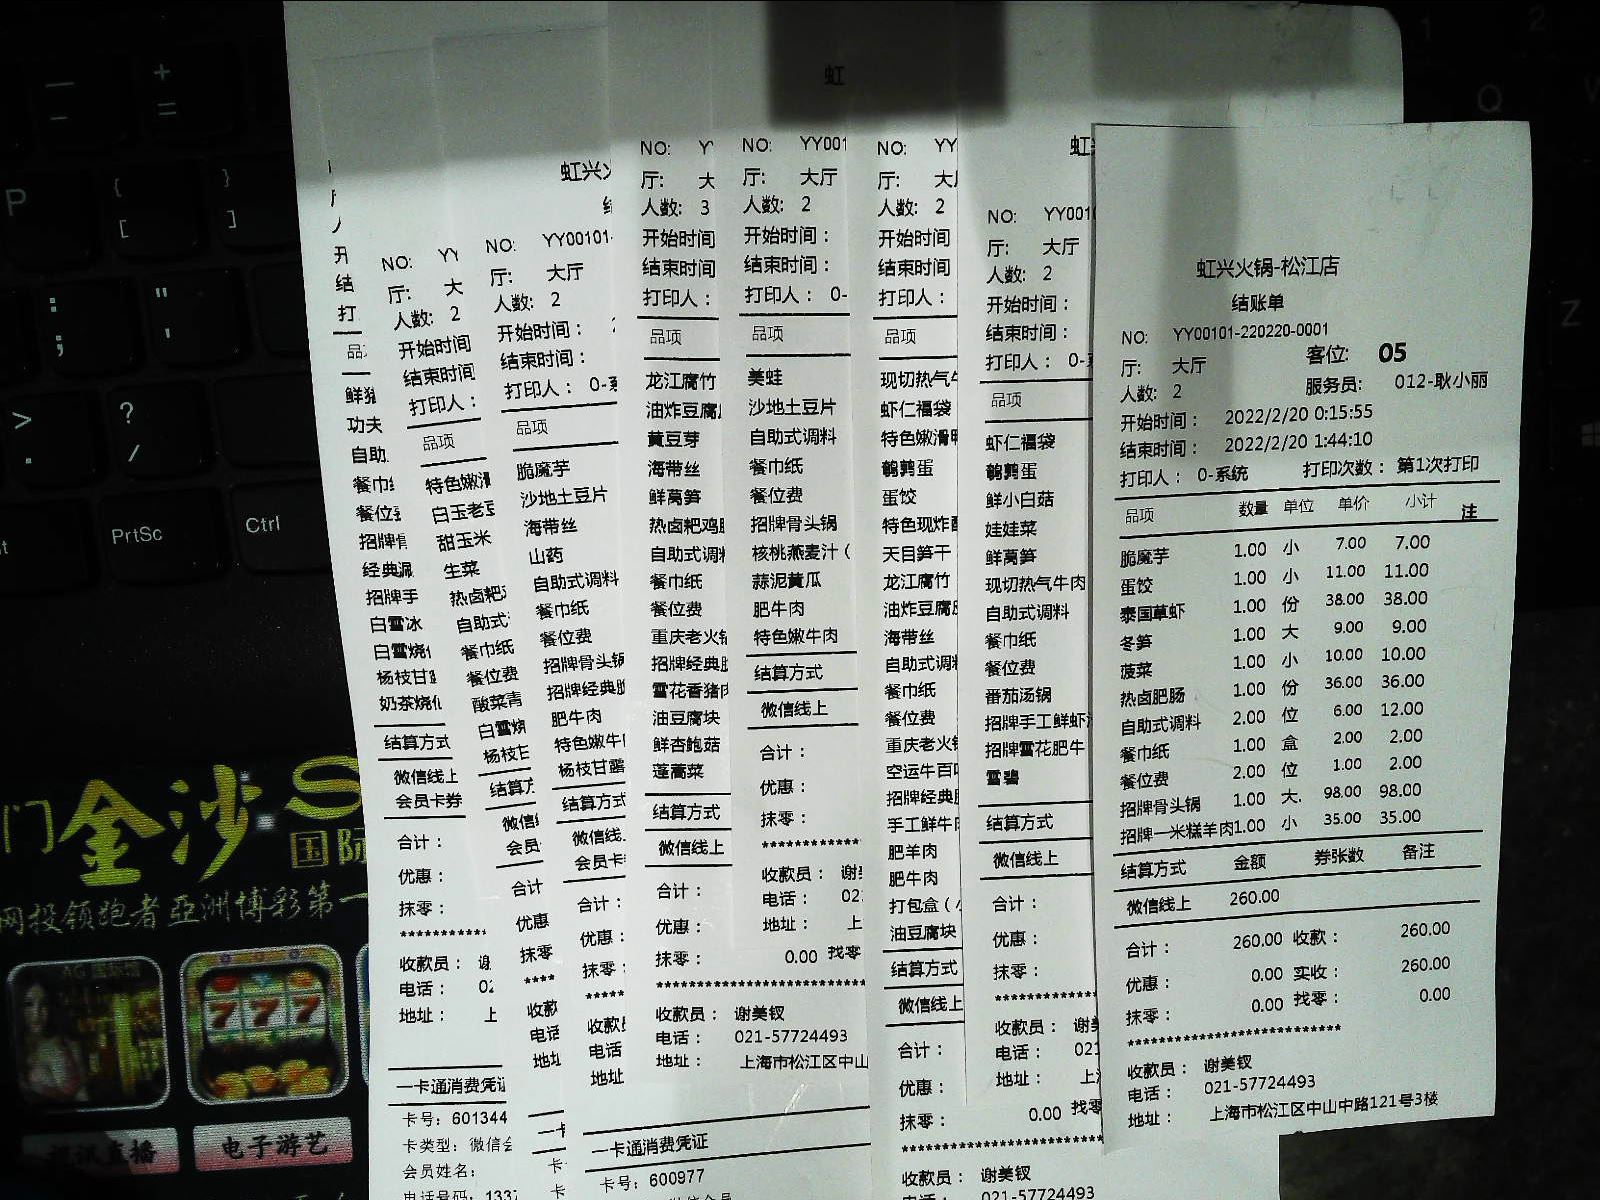 虹兴火锅-松江店
结账单
NO: YY00101-220220-0001
厅: 大厅 客位: 05
人数: 2 服务员: 012-耿小丽
开始时间: 2022/2/20 0:15:55
结束时间: 2022/2/20 1:44:10
打印人: 0-系统 打印次数: 第1次打印
品项 数量 单位 单价 小计 注
脆魔芋 1.00 小 7.00 7.00
蛋饺 1.00 小 11.00 11.00
泰国草虾 1.00 份 38.00 38.00
冬笋 1.00 大 9.00 9.00
菠菜 1.00 小 10.00 10.00
热卤肥肠 1.00 份 36.00 36.00
自助式调料 2.00 位 6.00 12.00
餐巾纸 1.00 盒 2.00 2.00
餐位费 2.00 位 1.00 2.00
招牌骨头锅 1.00 大. 98.00 98.00
招牌一米糕羊肉1.00 小 35.00 35.00
结算方式 金额 券张数 备注
微信线上 260.00
合计: 260.00 收款: 260.00
优惠: 0.00 实收: 260.00
抹零: 0.00 找零: 0.00
******************************
收款员: 谢美钗
电话: 021-57724493
地址: 上海市松江区中山中路121号3楼
NO: YY001
厅: 大厅
人数: 2
开始时间:
结束时间:
打印人: 0-
品项
虾仁福袋
鹌鹑蛋
鲜小白菇
娃娃菜
鲜莴笋
现切热气牛肉
自助式调料
餐巾纸
餐位费
番茄汤锅
招牌手工鲜虾
招牌雪花肥牛
雪碧
结算方式
微信线上
合计:
优惠:
抹零:
收款员: 谢
电话: 021
地址: 上
NO: YY
厅: 大
人数: 2
开始时间
结束时间
打印人:
品项
现切热气
虾仁福袋
特色嫩滑
鹌鹑蛋
蛋饺
特色现炸
天目笋干
龙江腐竹
油炸豆腐
海带丝
自助式调
餐巾纸
餐位费
重庆老火
空运牛百
招牌经典
手工鲜牛
肥羊肉
肥牛肉
打包盒(
油豆腐块
结算方式
微信线上
合计:
优惠:
抹零: 0.00 找零
******************************
收款员: 谢美钗
电话: 021-57724493
NO: YY001
厅: 大厅
人数: 2
开始时间:
结束时间:
打印人: 0-
品项
美蛙
沙地土豆片
自助式调料
餐巾纸
餐位费
招牌骨头锅
核桃燕麦汁(
蒜泥黄瓜
肥牛肉
特色嫩牛肉
结算方式
微信线上
合计:
优惠:
抹零:
收款员: 谢
电话: 02
地址: 上
NO: Y
厅: 大
人数: 3
开始时间
结束时间
打印人:
品项
龙江腐竹
油炸豆腐
黄豆芽
海带丝
鲜莴笋
热卤粑鸡
自助式调
餐巾纸
餐位费
重庆老火
招牌经典
雪花香猪
油豆腐块
鲜杏鲍菇
蓬蒿菜
结算方式
微信线上
合计:
优惠:
抹零: 0.00 找零
******************************
收款员: 谢美钗
电话: 021-57724493
地址: 上海市松江区中山
一卡通消费凭证
卡号: 600977
虹兴
NO: YY00101
厅: 大厅
人数: 2
开始时间:
结束时间:
打印人: 0-
品项
脆魔芋
沙地土豆片
海带丝
山药
自助式调料
餐巾纸
餐位费
招牌骨头锅
招牌经典
肥牛肉
特色嫩牛
杨枝甘露
结算方式
微信线
会员卡
合计:
优惠:
抹零:
收款
电话
地址
NO: YY
厅: 大
人数: 2
开始时间
结束时间
打印人:
品项
特色嫩
白玉老豆
甜玉米
生菜
热卤粑
自助式
餐巾纸
餐位费
酸菜青
白雪
杨枝
结算方
微信
会员
合计
优惠
抹零
收款
电话
地址
人
开
结
打
品
鲜
功夫
自助
餐巾
餐位
招牌
经典
招牌手
白雪冰
白雪烧
杨枝甘
奶茶烧
结算方式
微信线上
会员卡券
合计:
优惠:
抹零:
收款员: 谢
电话: 02
地址: 上
一卡通消费凭证
卡号: 601344
卡类型: 微信会
会员姓名:
电话号码: 133
P
PrtSc
Ctrl
门金沙
国际
网投领跑者亞洲博彩第一
777
电子游艺